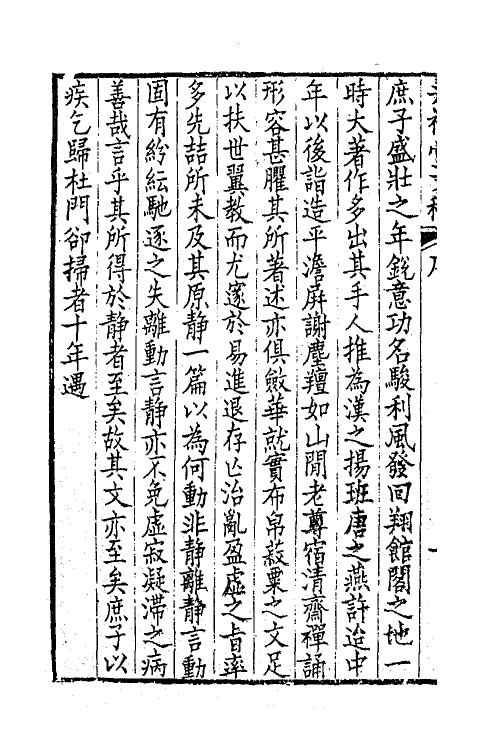 庶子盛壯之年銳意功名駿利風發回翔館閣之地一
時大著作多出其手人推為漢之揚班唐之燕許迨中
年以後詣造平澹屛謝塵羶如山閒老尊宿清齋禪誦
形容甚臞其所著述亦俱斂華就實布帛菽粟之文足
以扶世翼敎而尤邃於易進退存亡治亂盈虛之旨率
多先喆所未及其原靜一篇以為何動非靜離靜言動
固有紛紜馳逐之失離動言靜亦不免虛寂凝滯之病
善哉言乎其所得於靜者至矣故其文亦至矣庶子以
疾乞歸杜門卻掃者十年遇